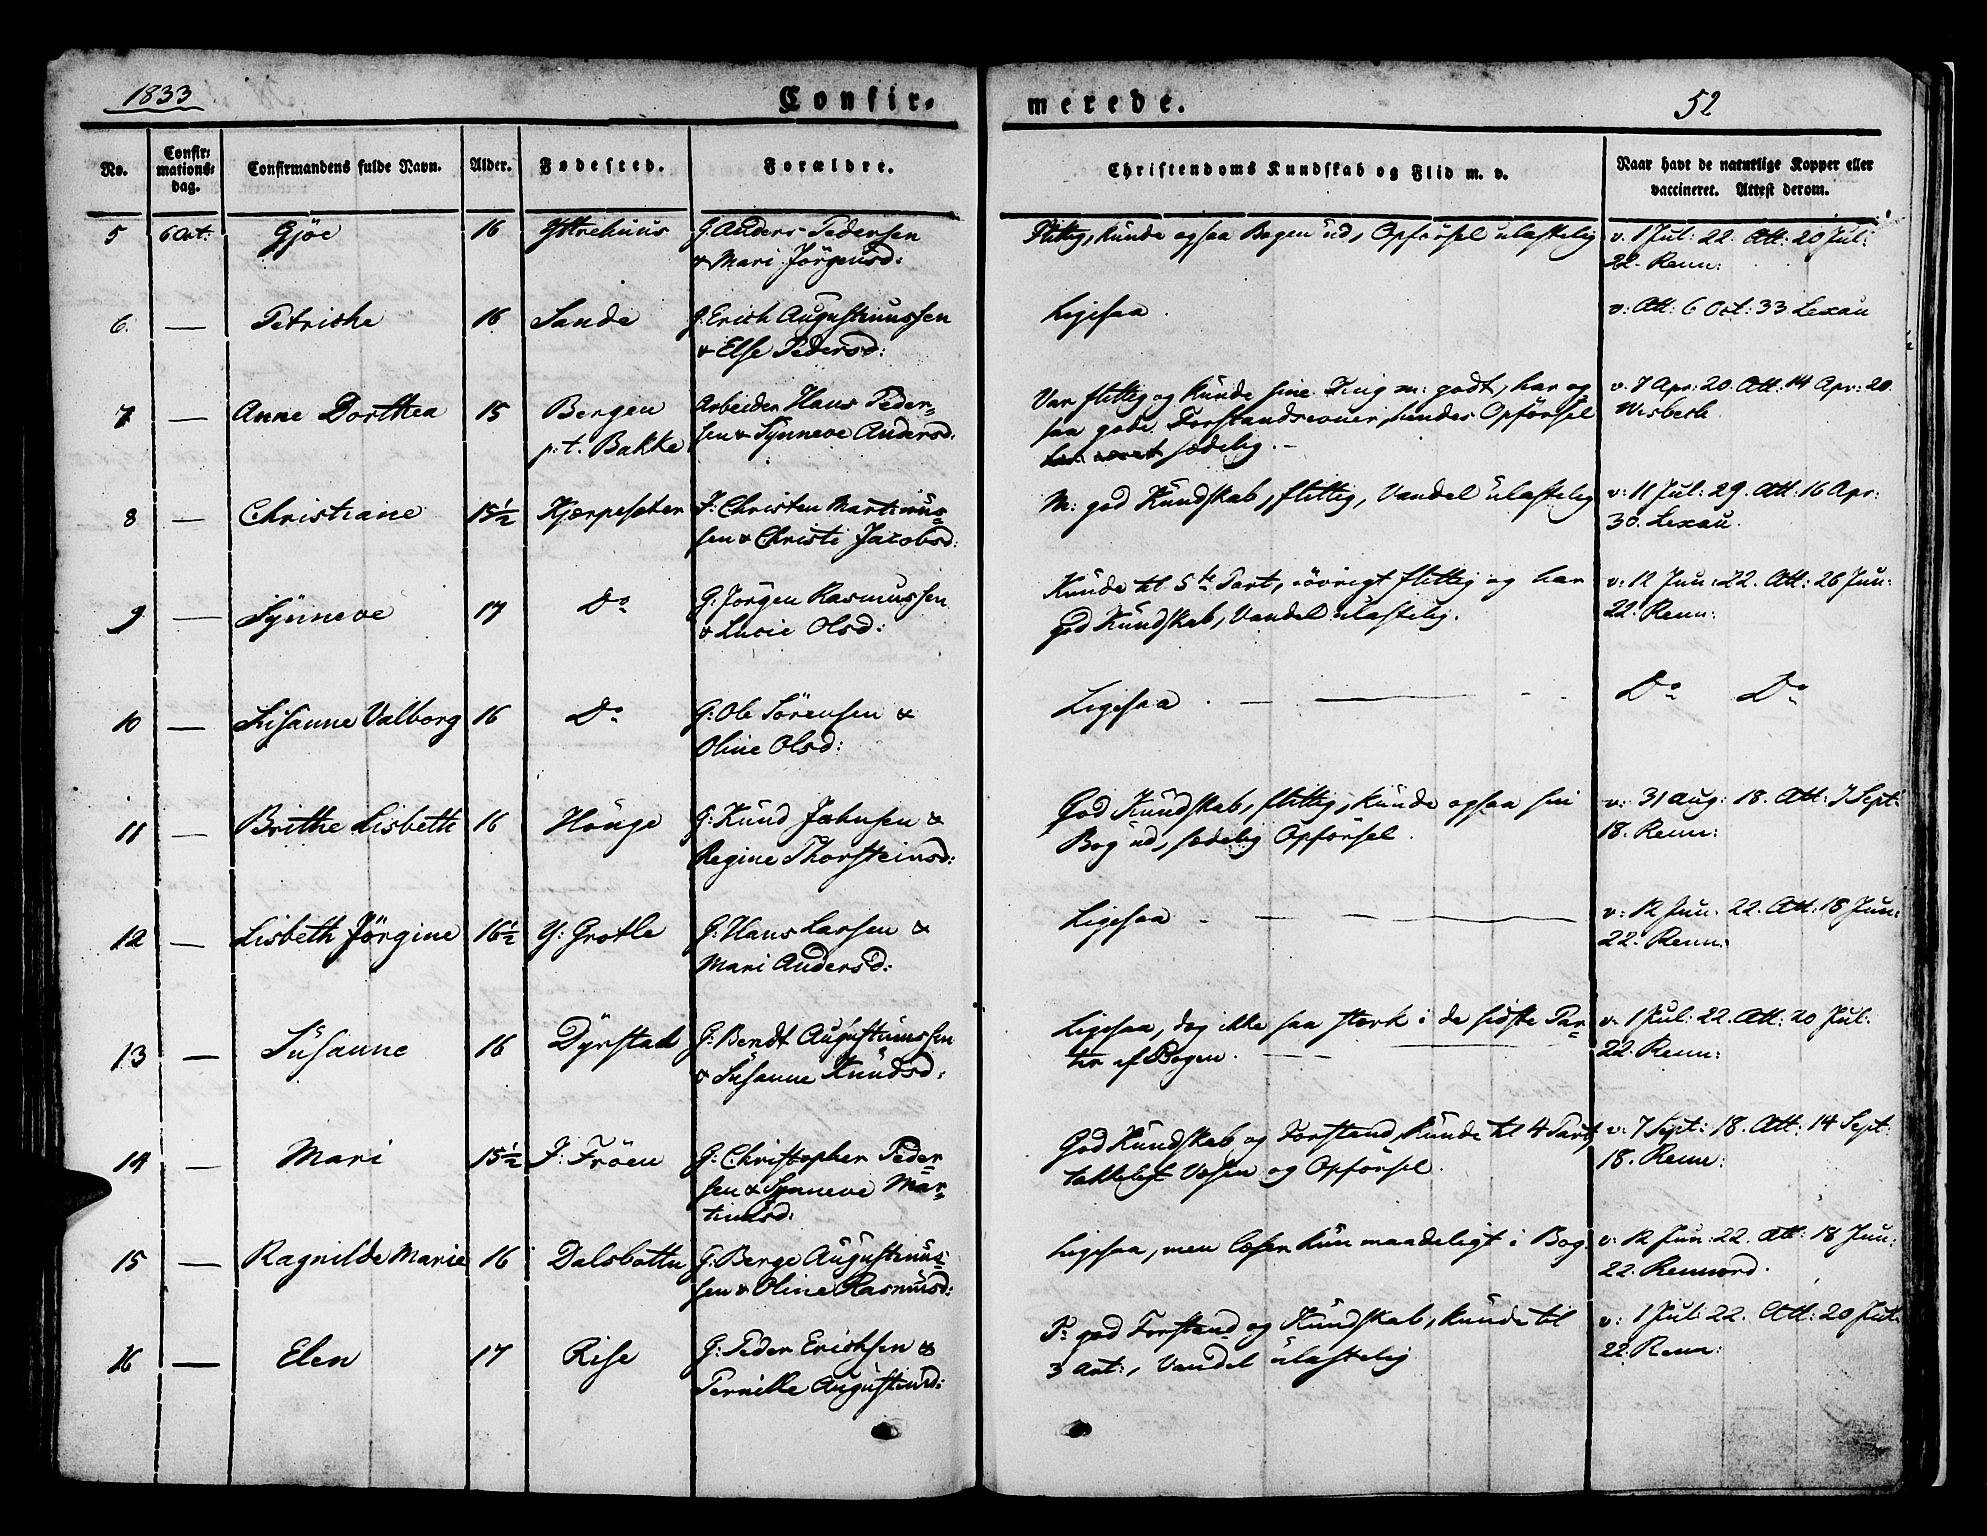 1833
Confir-
merede.
52
No.
Confir-
mations-
dag.
Confirmandens fulde Navn.
Alder.
Fødested.
Forældre.
Christendoms Kundskab og Flid m. v.
Naar havt de naturlige Kopper eller
vaccineret. Attest derom.
5 6 Oct: Gjøe 16 Yttrehuus G. Anders Pedersen
& Mari Jörgensd:
Flittig, kunde ogsaa Bogen ud, Opförsel ulastelig
v. 1 Jul: 22. Att: 20 Jul:
22. Renn:
6. — Petriche 16 Sande G: Erich Augustinussen
& Else Pedersd:
Ligesaa.
v: Att: 6 Oct: 33 Lexau
7 — Anne Dorthea 15 Bergen Arbeider Hans Peder-
p: t. Bakke sen & Synneve Andersd.
Var flittig og kunde sine Ting m: godt, har og
saa gode Forstandsevner, hendes Opförsel
har været sædelig. —
v. 7 Apr: 20. Att: 14 Apr: 20.
Wisbech
8 — Christiane 15½ Kjerpeseter F: Christen Martinus-
sen & Christi Jacobsd:
M: god Kundskab, flittig, Vandel ulastelig
v: 11 Jul: 29. Att: 16 Apr:
30. Lexau.
9 — Synneve 17 Do G: Jörgen Rasmussen
& Lucie Olsd:
Kunde til 5te Part, iövrigt flittig og har
god Kundskab, Vandel ulastelig.
v: 12 Jun: 22. Att: 26 Jun:
22. Renn:
10 — Susanne Valborg 16 Do G: Ole Sörensen &
Oline Olsd:
Ligesaa. — — —
Do Do
11 — Brithe Lisbeth 16 Hönge G: Knud Johnsen &
Regine Thorsteinsd:
God Kundskab, flittig, kunde ogsaa sin
Bog ud, sædelig Opförsel.
v: 31 Aug: 18. Att: 7 Sept:
18. Renn:
12 — Lisbeth Jörgine 16½ Y: Grotle G: Hans Larsen &
Mari Andersd:
Ligesaa — — —
v: 12 Jun. 22. Att: 18 Jun:
22. Renn:
13 — Susanne 16 Dyrstad G: Bendt Augustinussen
& Susanne Knudsd:
Ligesaa, dog ikke saa stærk i de sidste Par-
ter af Bogen. — —
v. 1 Jul: 22. Att: 20 Jul.
22. Renn:
14 — Mari 15½ I: Fröen G: Christopher Peder-
sen & Synneve Mar-
tinusd:
God Kundskab og Forstand, kunde til 4 Part,
takkeligt Væsen og Opförsel.
v: 7 Sept: 18. Att: 14 Sept:
18. Renn:
15 — Ragnilde Marie 16 Dalsbotten G: Berge Augustinus-
sen & Oline Rasmusd:
Ligesaa, men læser kun maadeligt i Bog.
v: 12 Jun: 22. Att: 18 Jun:
22. Rennord.
16 — Elen 17 Rise G: Peder Erichsen &
Pernille Augustind:
T: god Forstand og Kundskab, kunde til
3 Art:, Vandel ulastelig
v: 1 Jul: 22. Att: 20 Jul:
22. Renn: